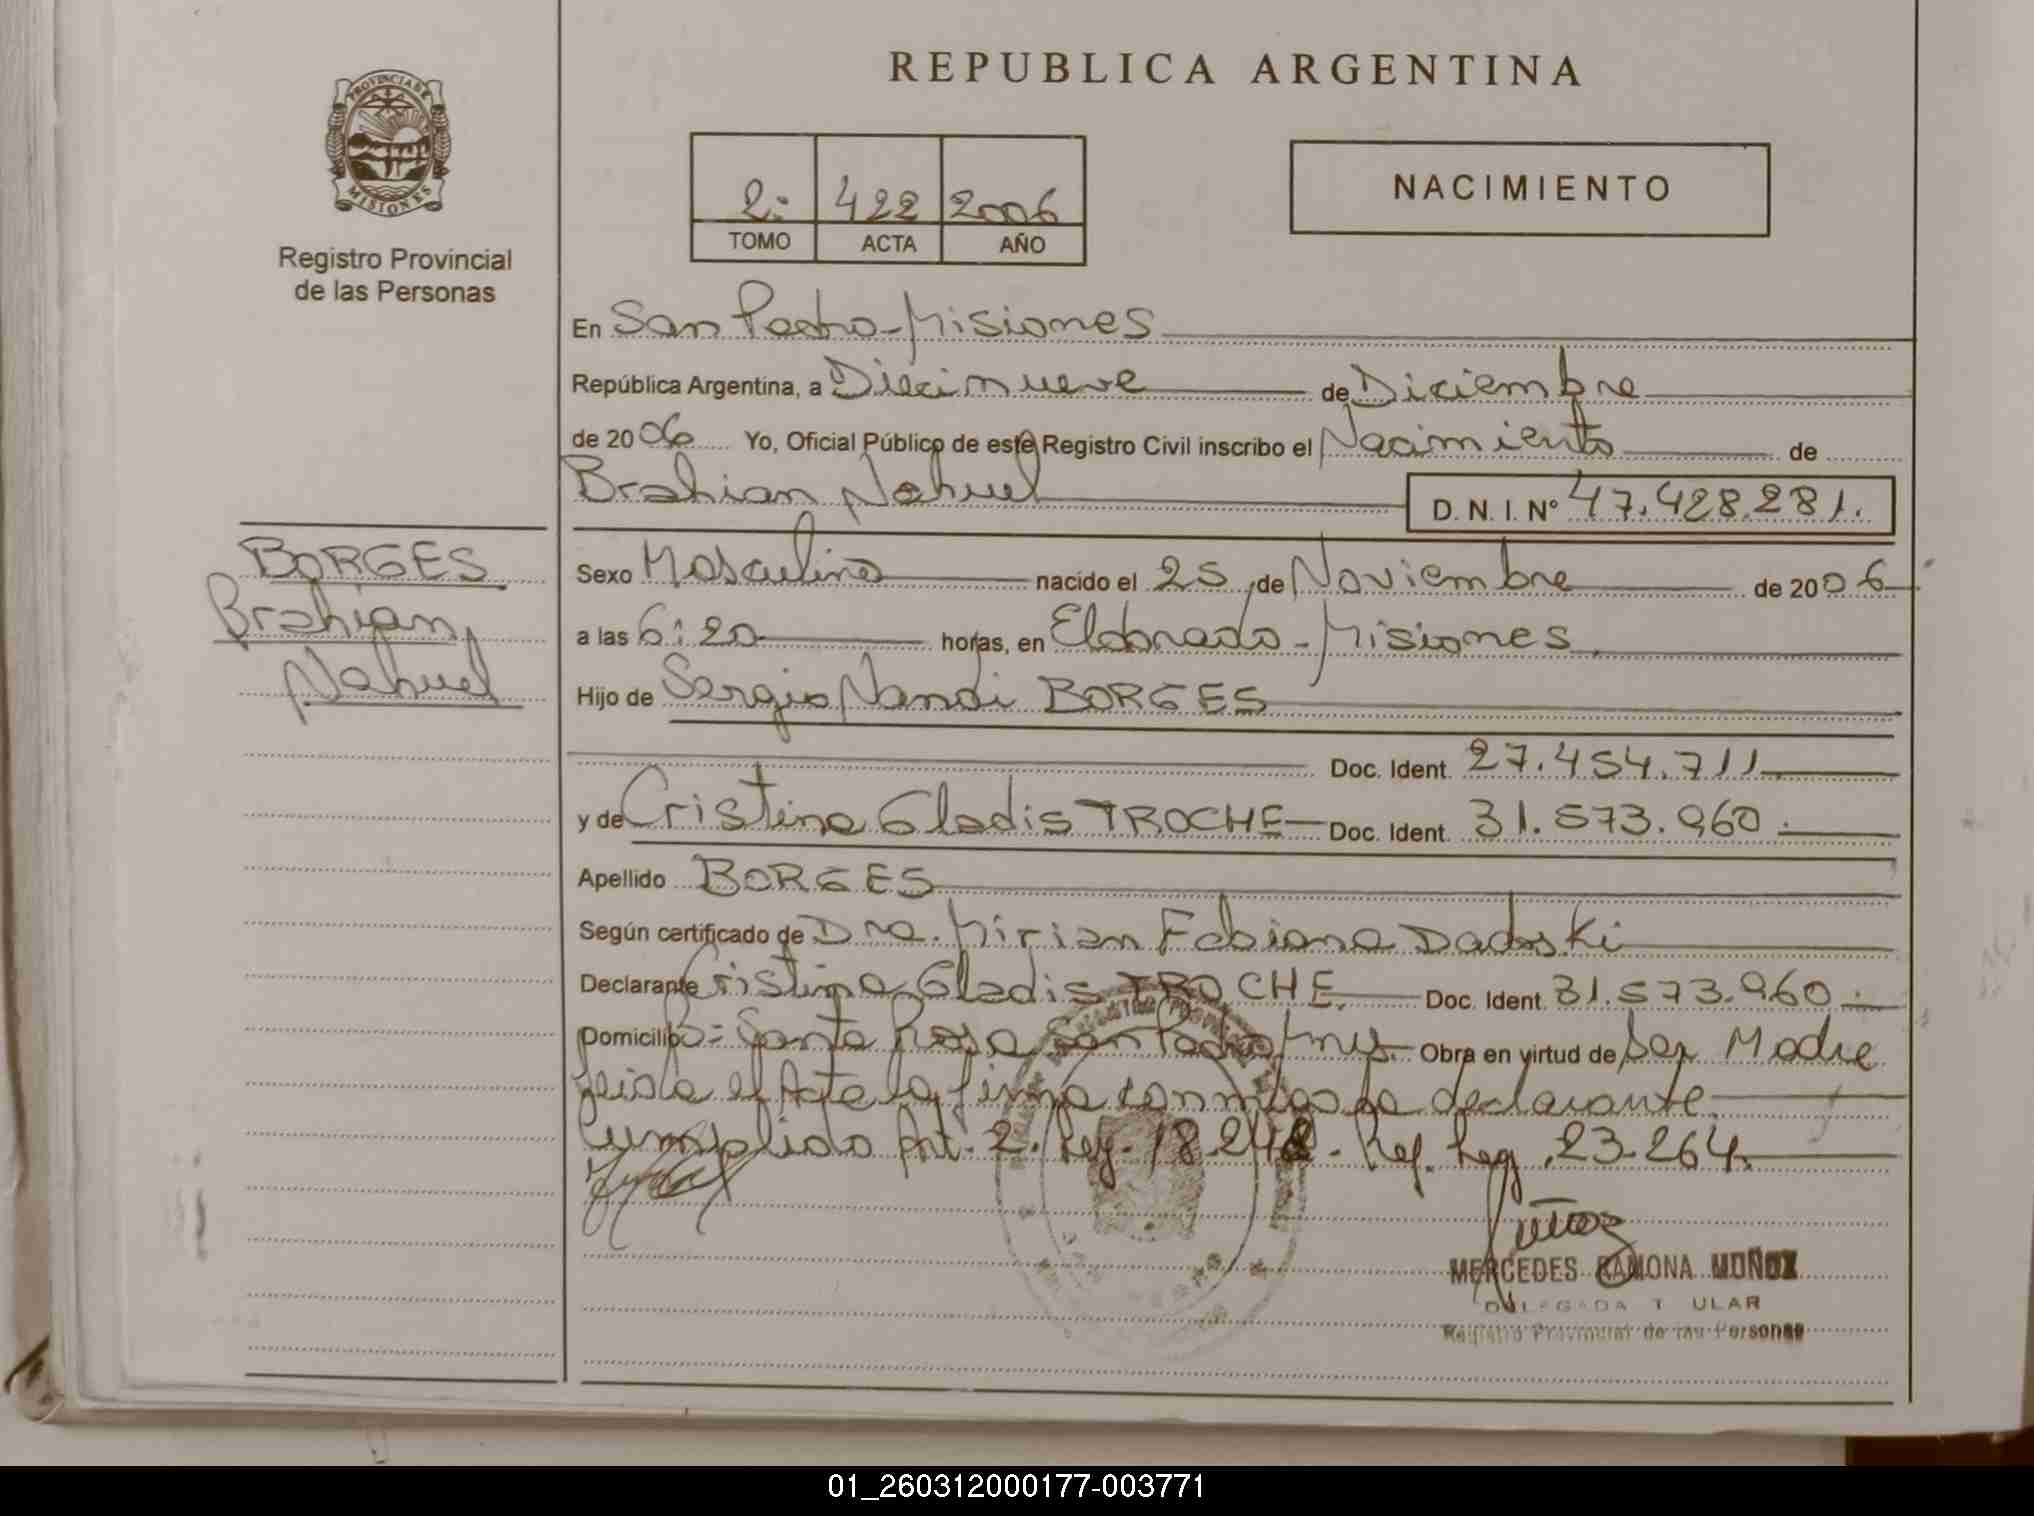 REPUBLICA ARGENTINA
PROVINCIA DE
MISIONES
Registro Provincial
de las Personas
2º 422 2006
TOMO ACTA AÑO
NACIMIENTO
En San Pedro - Misiones
República Argentina, a Diecinueve de Diciembre
de 2006 Yo, Oficial Público de este Registro Civil inscribo el Nacimiento de
Brahian Nahuel D. N. I. Nº 47.428.281.
BORGES
Brahian
Nahuel
Sexo Masculino nacido el 25 de Noviembre de 2006
a las 6:20 horas, en Eldorado - Misiones
Hijo de Sergio Nandi BORGES
Doc. Ident. 27.454.711
y de Cristina Gladis TROCHE Doc. Ident. 31.573.960.
Apellido BORGES
Según certificado de Dra. Mirian Fabiana Dadoski
Declarante Cristina Gladis TROCHE. Doc. Ident. 31.573.960.
Domicilio Bº Santa Rosa San Pedro Mnes. Obra en virtud de Ser Madre
leida el Acta la firma conmigo la declarante.
Cumplido Art. 2. Ley. 18.248. Ref. Leg. 23.264.
MERCEDES RAMONA MUÑOZ
DELEGADA TITULAR
Registro Provincial de las Personas
01_260312000177-003771